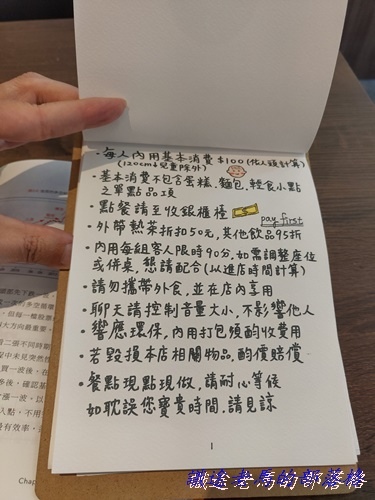 ・每人內用基本消費$100(依人頭計算)
(120cm↓兒童除外)
・基本消費不包含蛋糕、麵包、輕食小點
之單點品項
・點餐請至收銀櫃檯
pay first
・外帶熱茶折扣50元,其他飲品95折
・內用每組客人限時90分,如需調整座位
或併桌,懇請配合(以進店時間計算)
・請勿攜帶外食,並在店內享用
・聊天請控制音量大小,不影響他人
・響應環保,內用打包須酌收費用
・若毀損本店相關物品,酌價賠償
・餐點現點現做,請耐心等候
如耽誤您寶貴時間,請見諒
1
Chap
鐵途老局的部落格